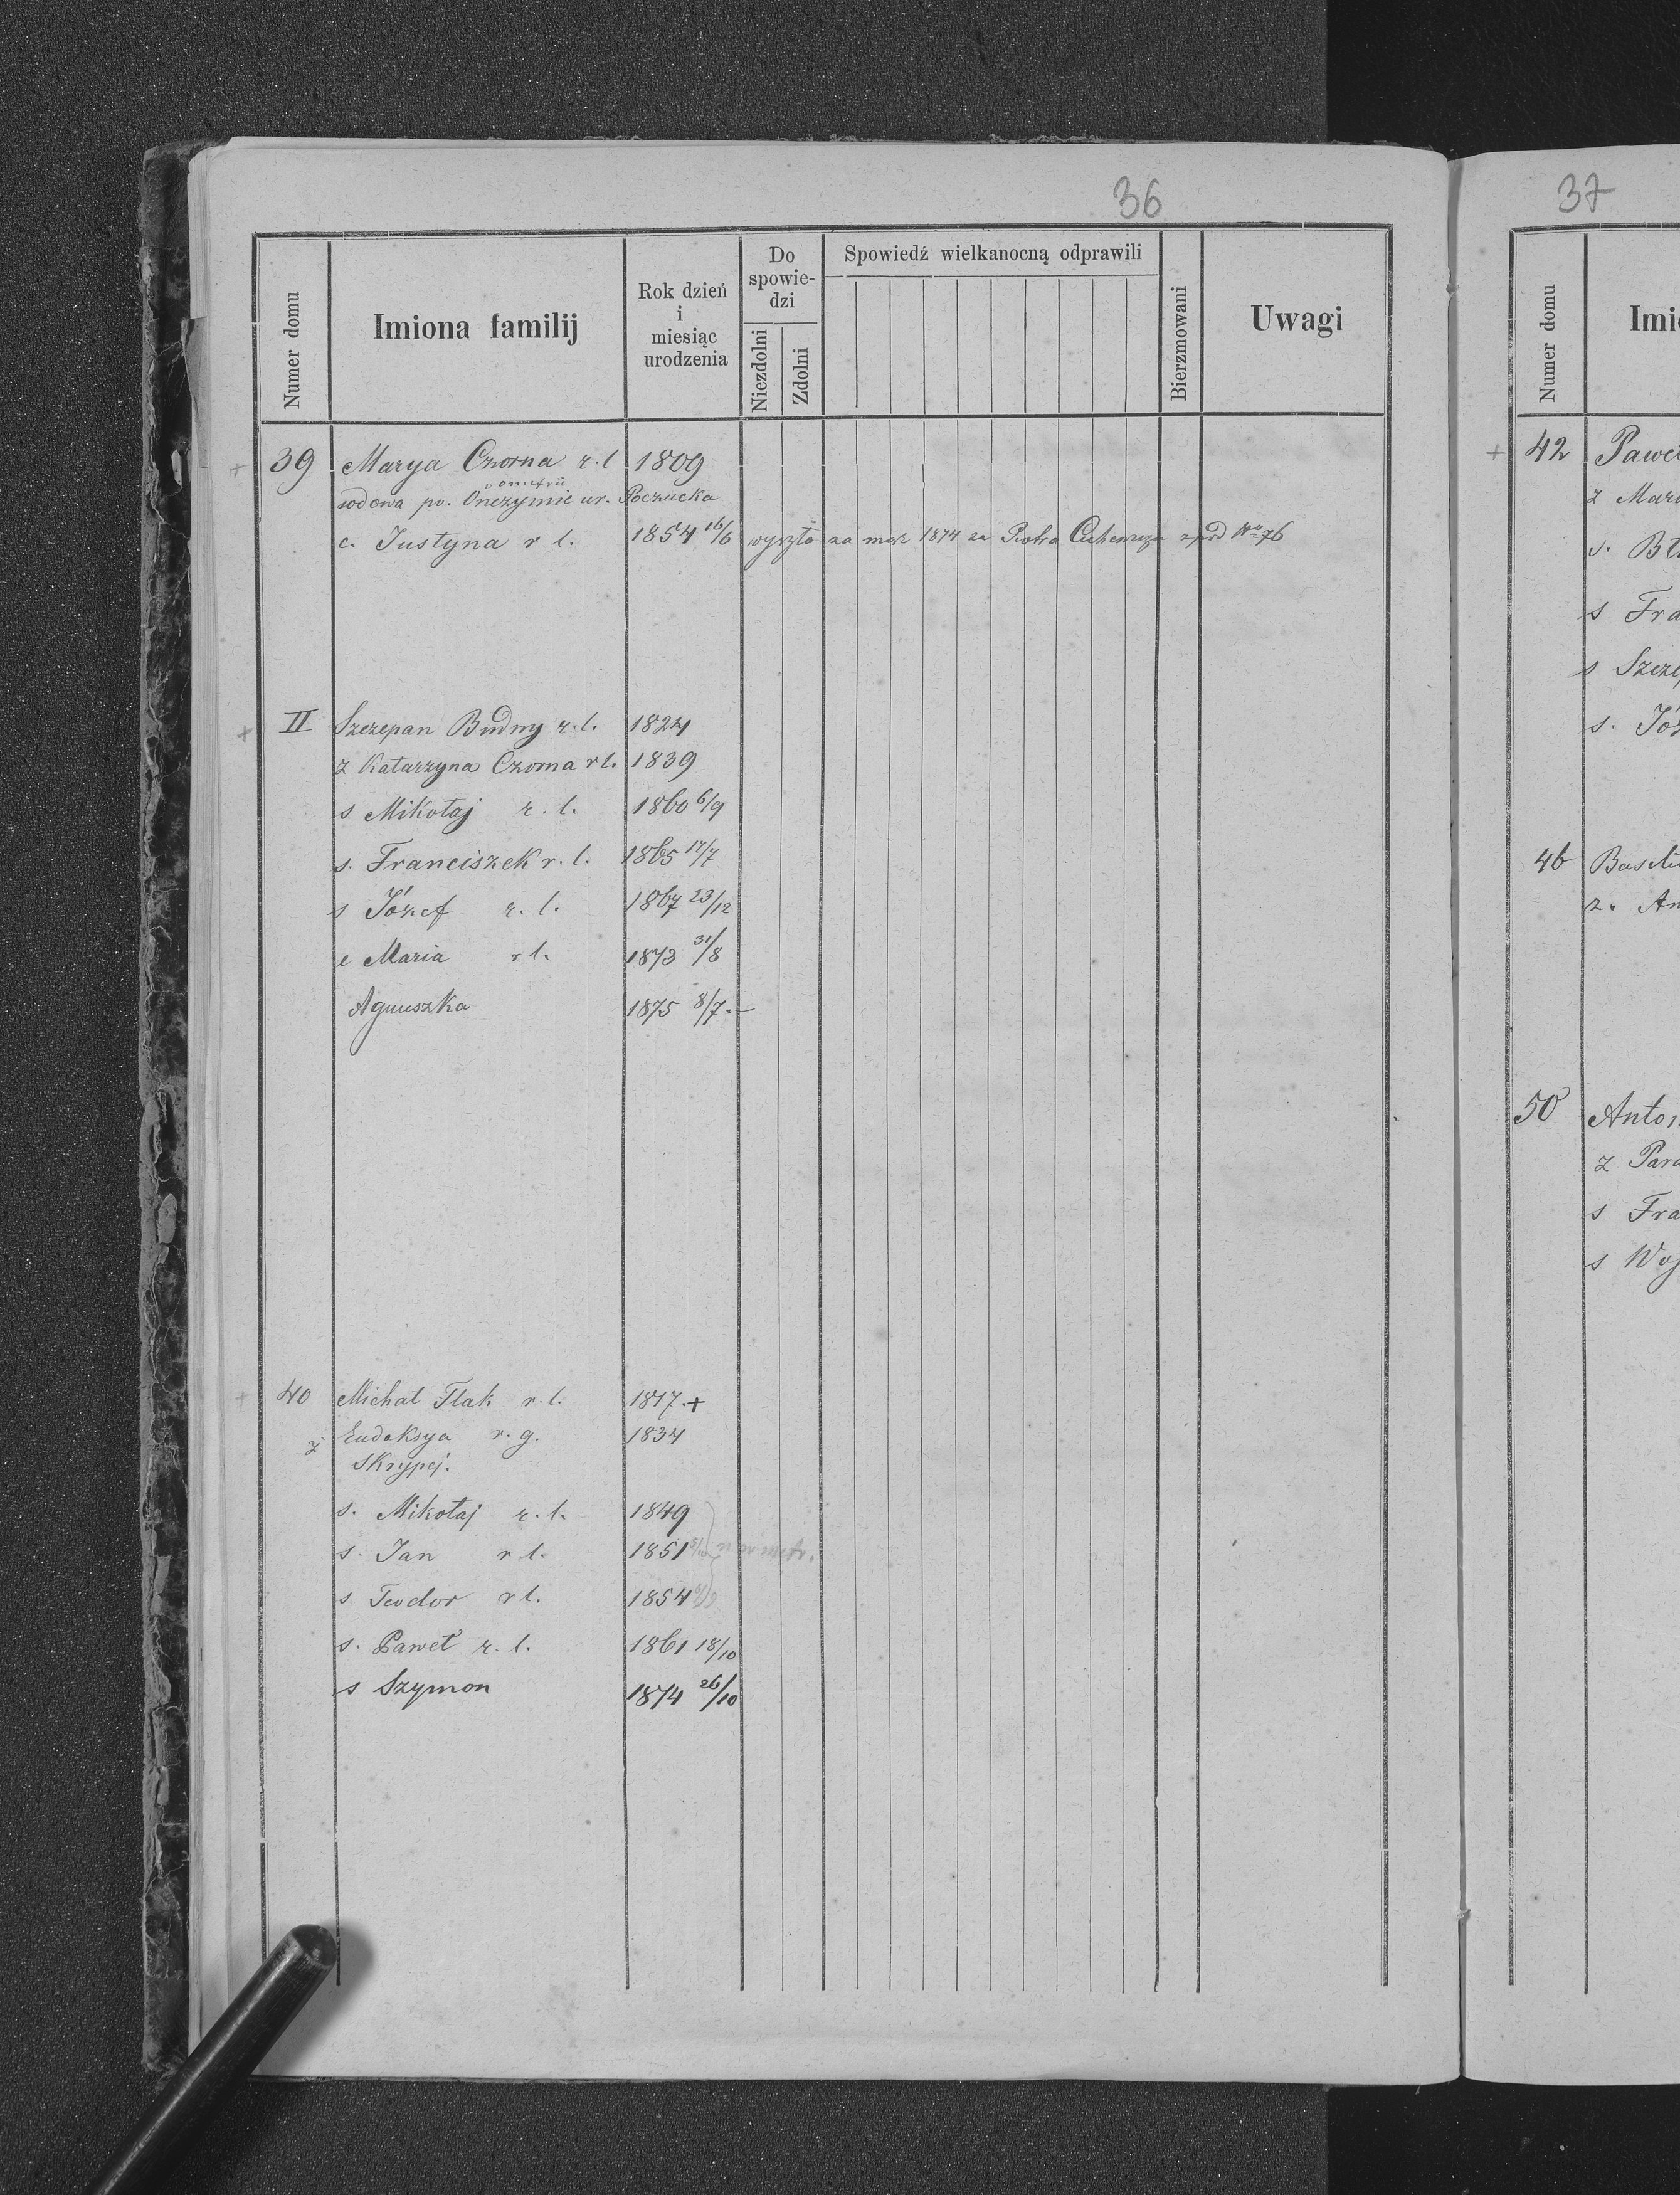 36
Numer domu
Imiona familij
Rok dzień
i
miesiąc
urodzenia
Do
spowie-
dzi
Niezdolni
Zdolni
Spowiedź wielkanocną odprawili
Bierzmowani
Uwagi
39 Marya Czorna r. l 1809
wdowa po. Onezymie ur. Poczucka
c. Justyna r l. 1854 16/6 wyszła za mąż 1874 za Piotra z pod No 76
II Szczepan Budny r. l. 1824
z Katarzyna Czorna r l. 1839
s Mikołaj r. l. 1860 6/9
s. Franciszek r. l. 1865 17/7
s Józef r. l. 1867 23/12
c Maria r l. 1873 31/8
Agnuszka 1875 8/7.—
40 Michał Flak r. l. 1817. +
z Eudoksya r. g. 1834
Skrypej.
s. Mikołaj r. l. 1849
s. Jan r l. 1851
s Teodor r l. 1854
s. Paweł r. l. 1861 18/10
s Szymon 1874 26/10
37
Numer domu
Imi
42 Pawe
z Mar
s. Bł
s Fra
s Szcze
s. Józ
46 Basil
z. An
50 Anton
z Para
s Fra
s Woj